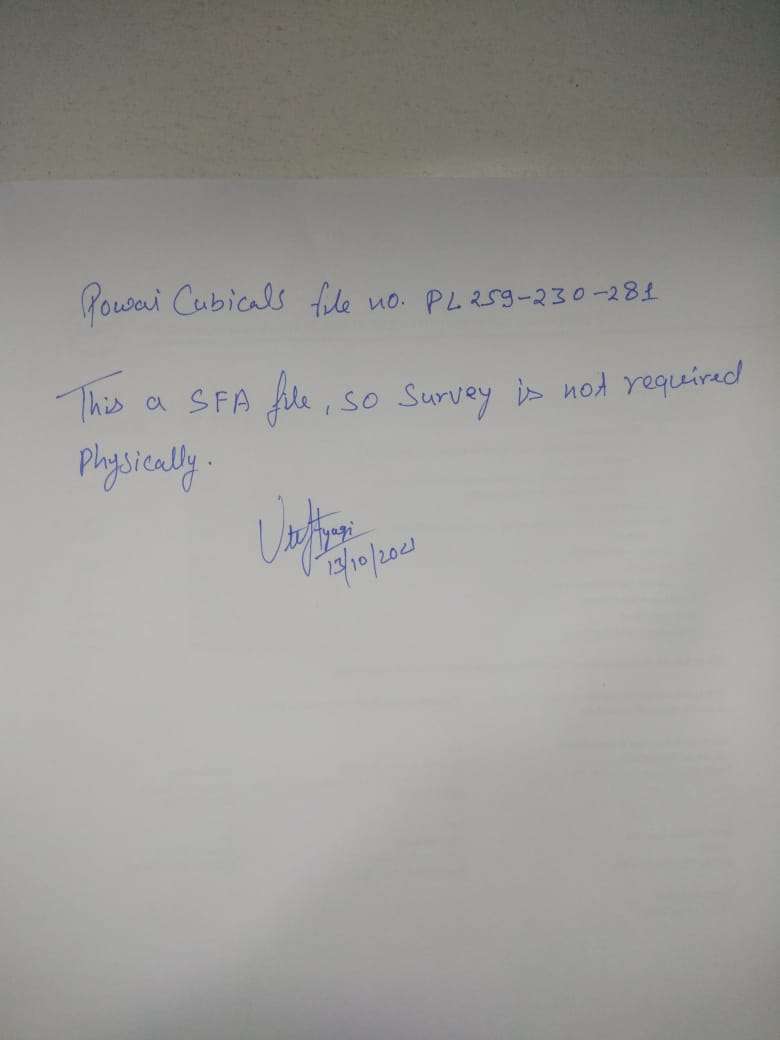 Powai Cubicals file no. PL259-230-281
This a SFA file, so Survey is not required
Physically.
tyagi
13/10/2021